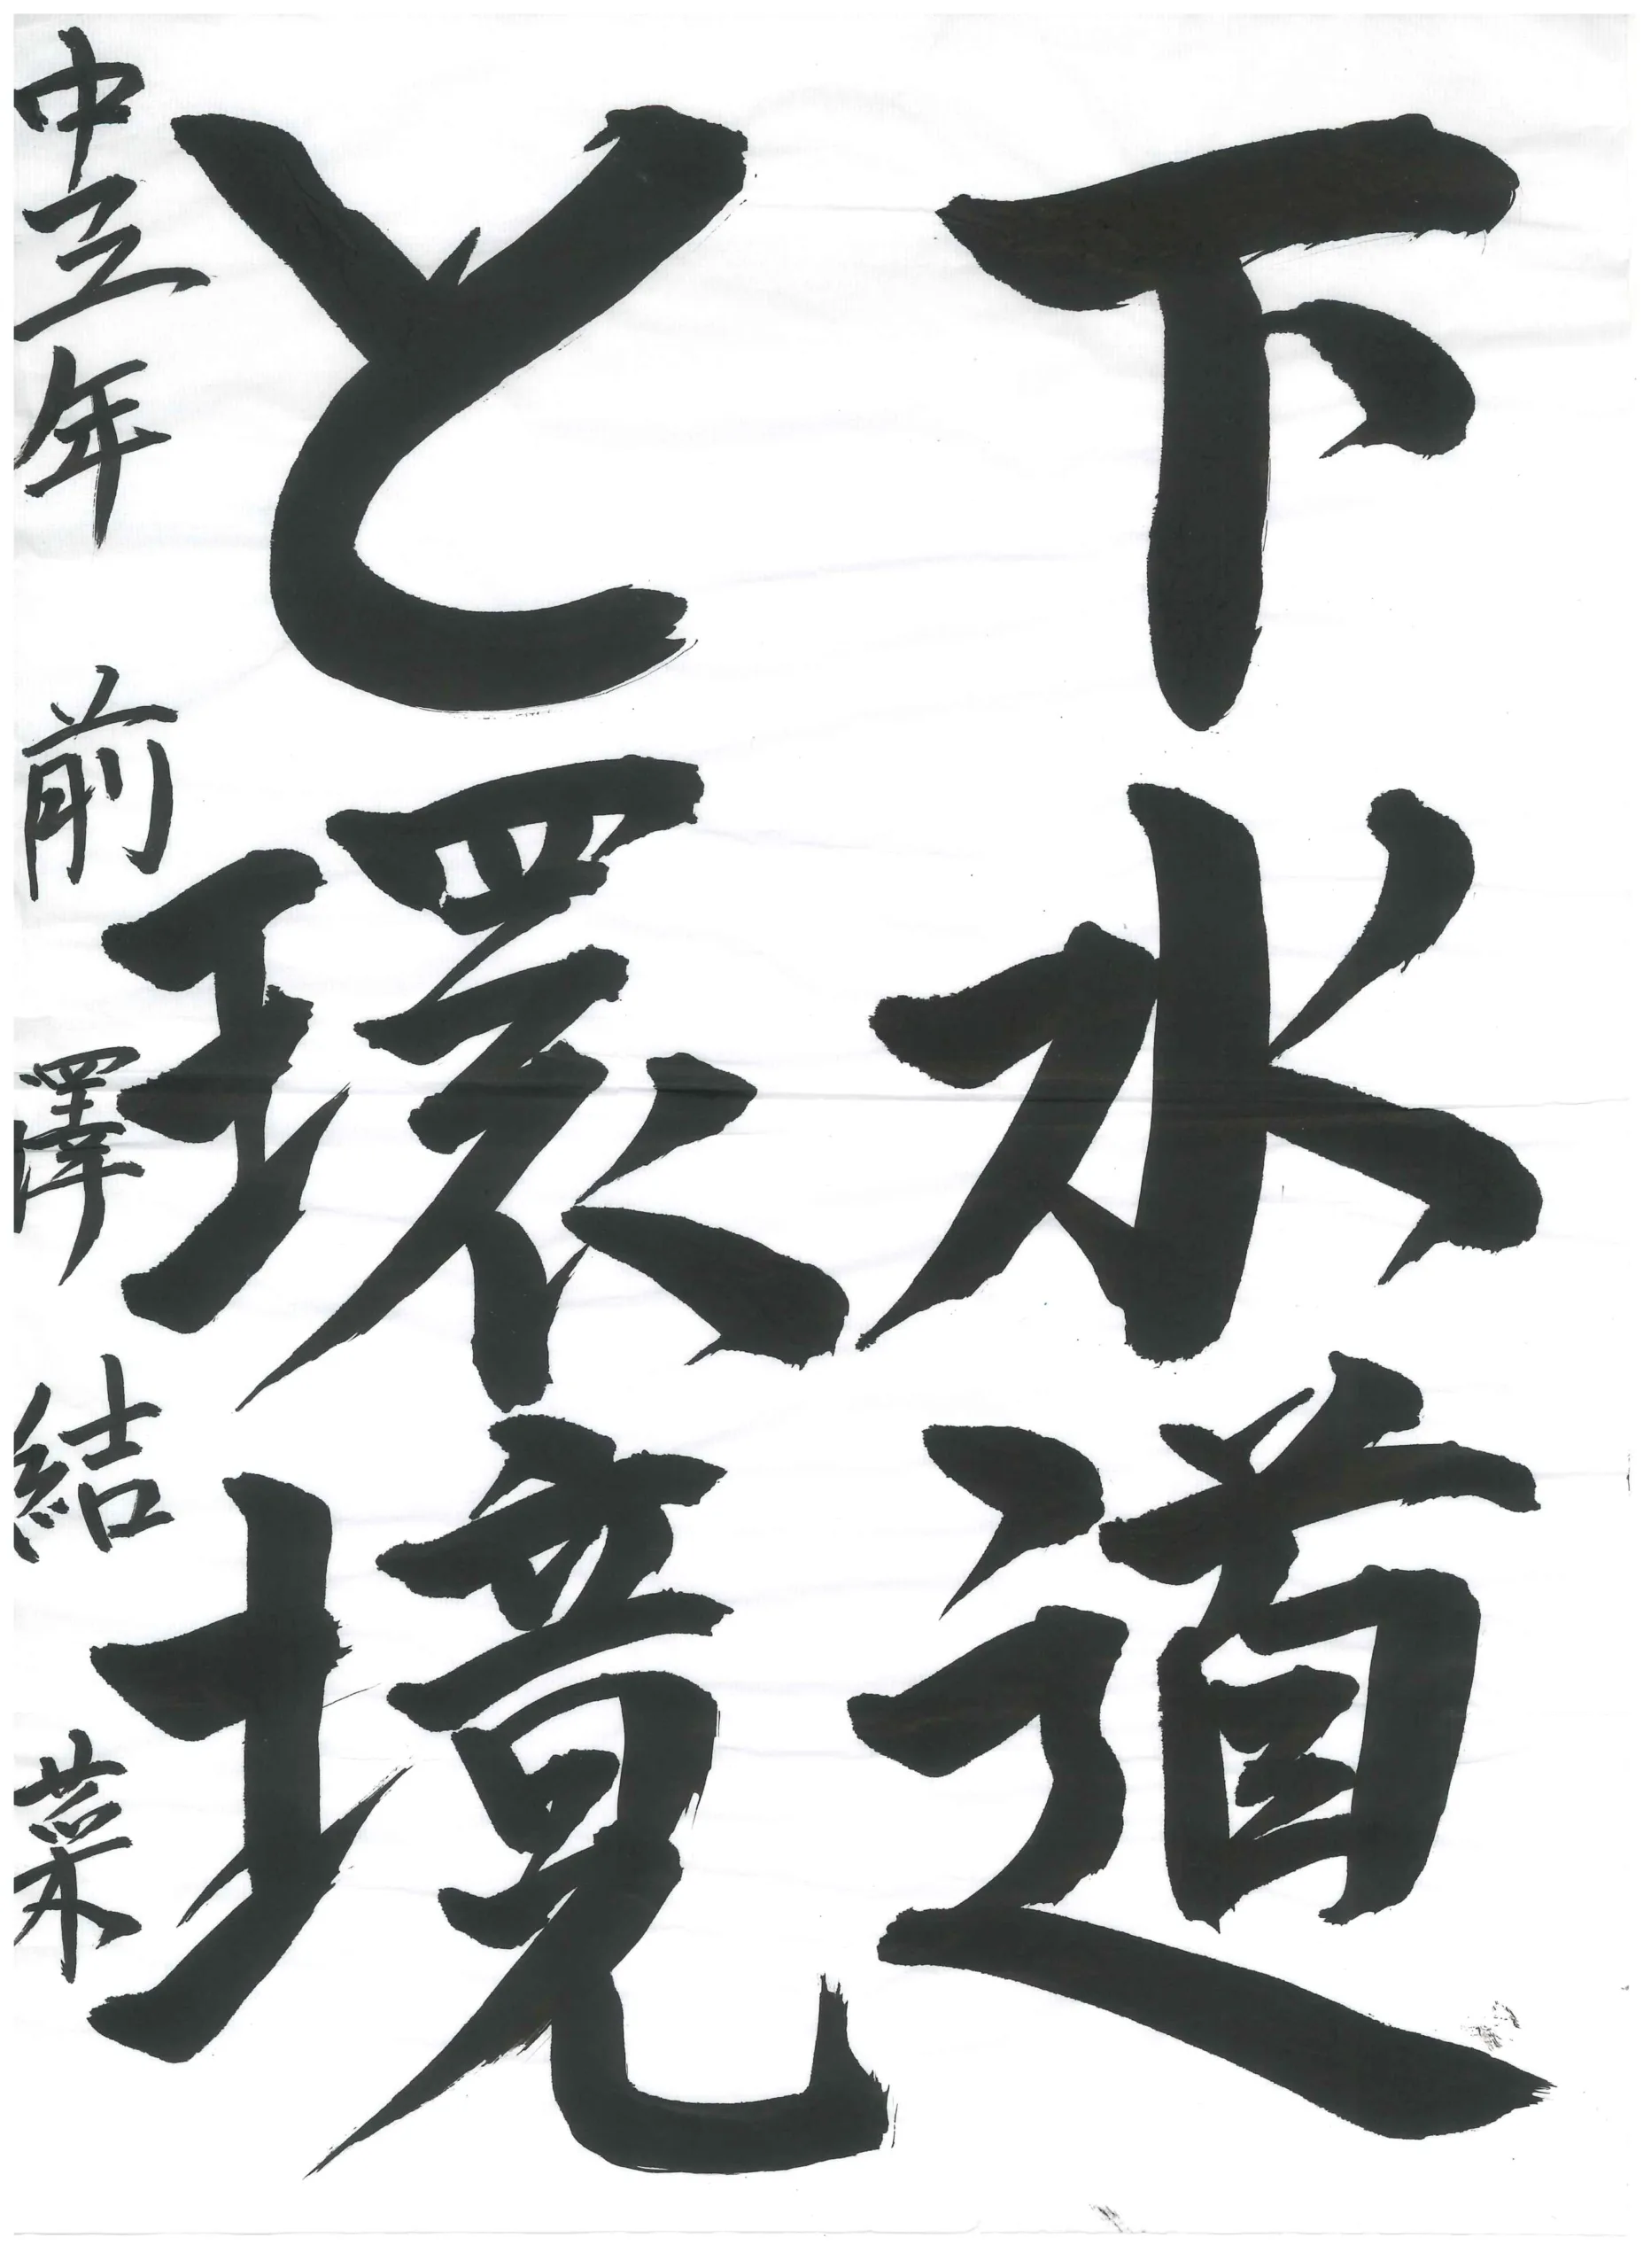 下水道
と環境
中三年 前澤結菜